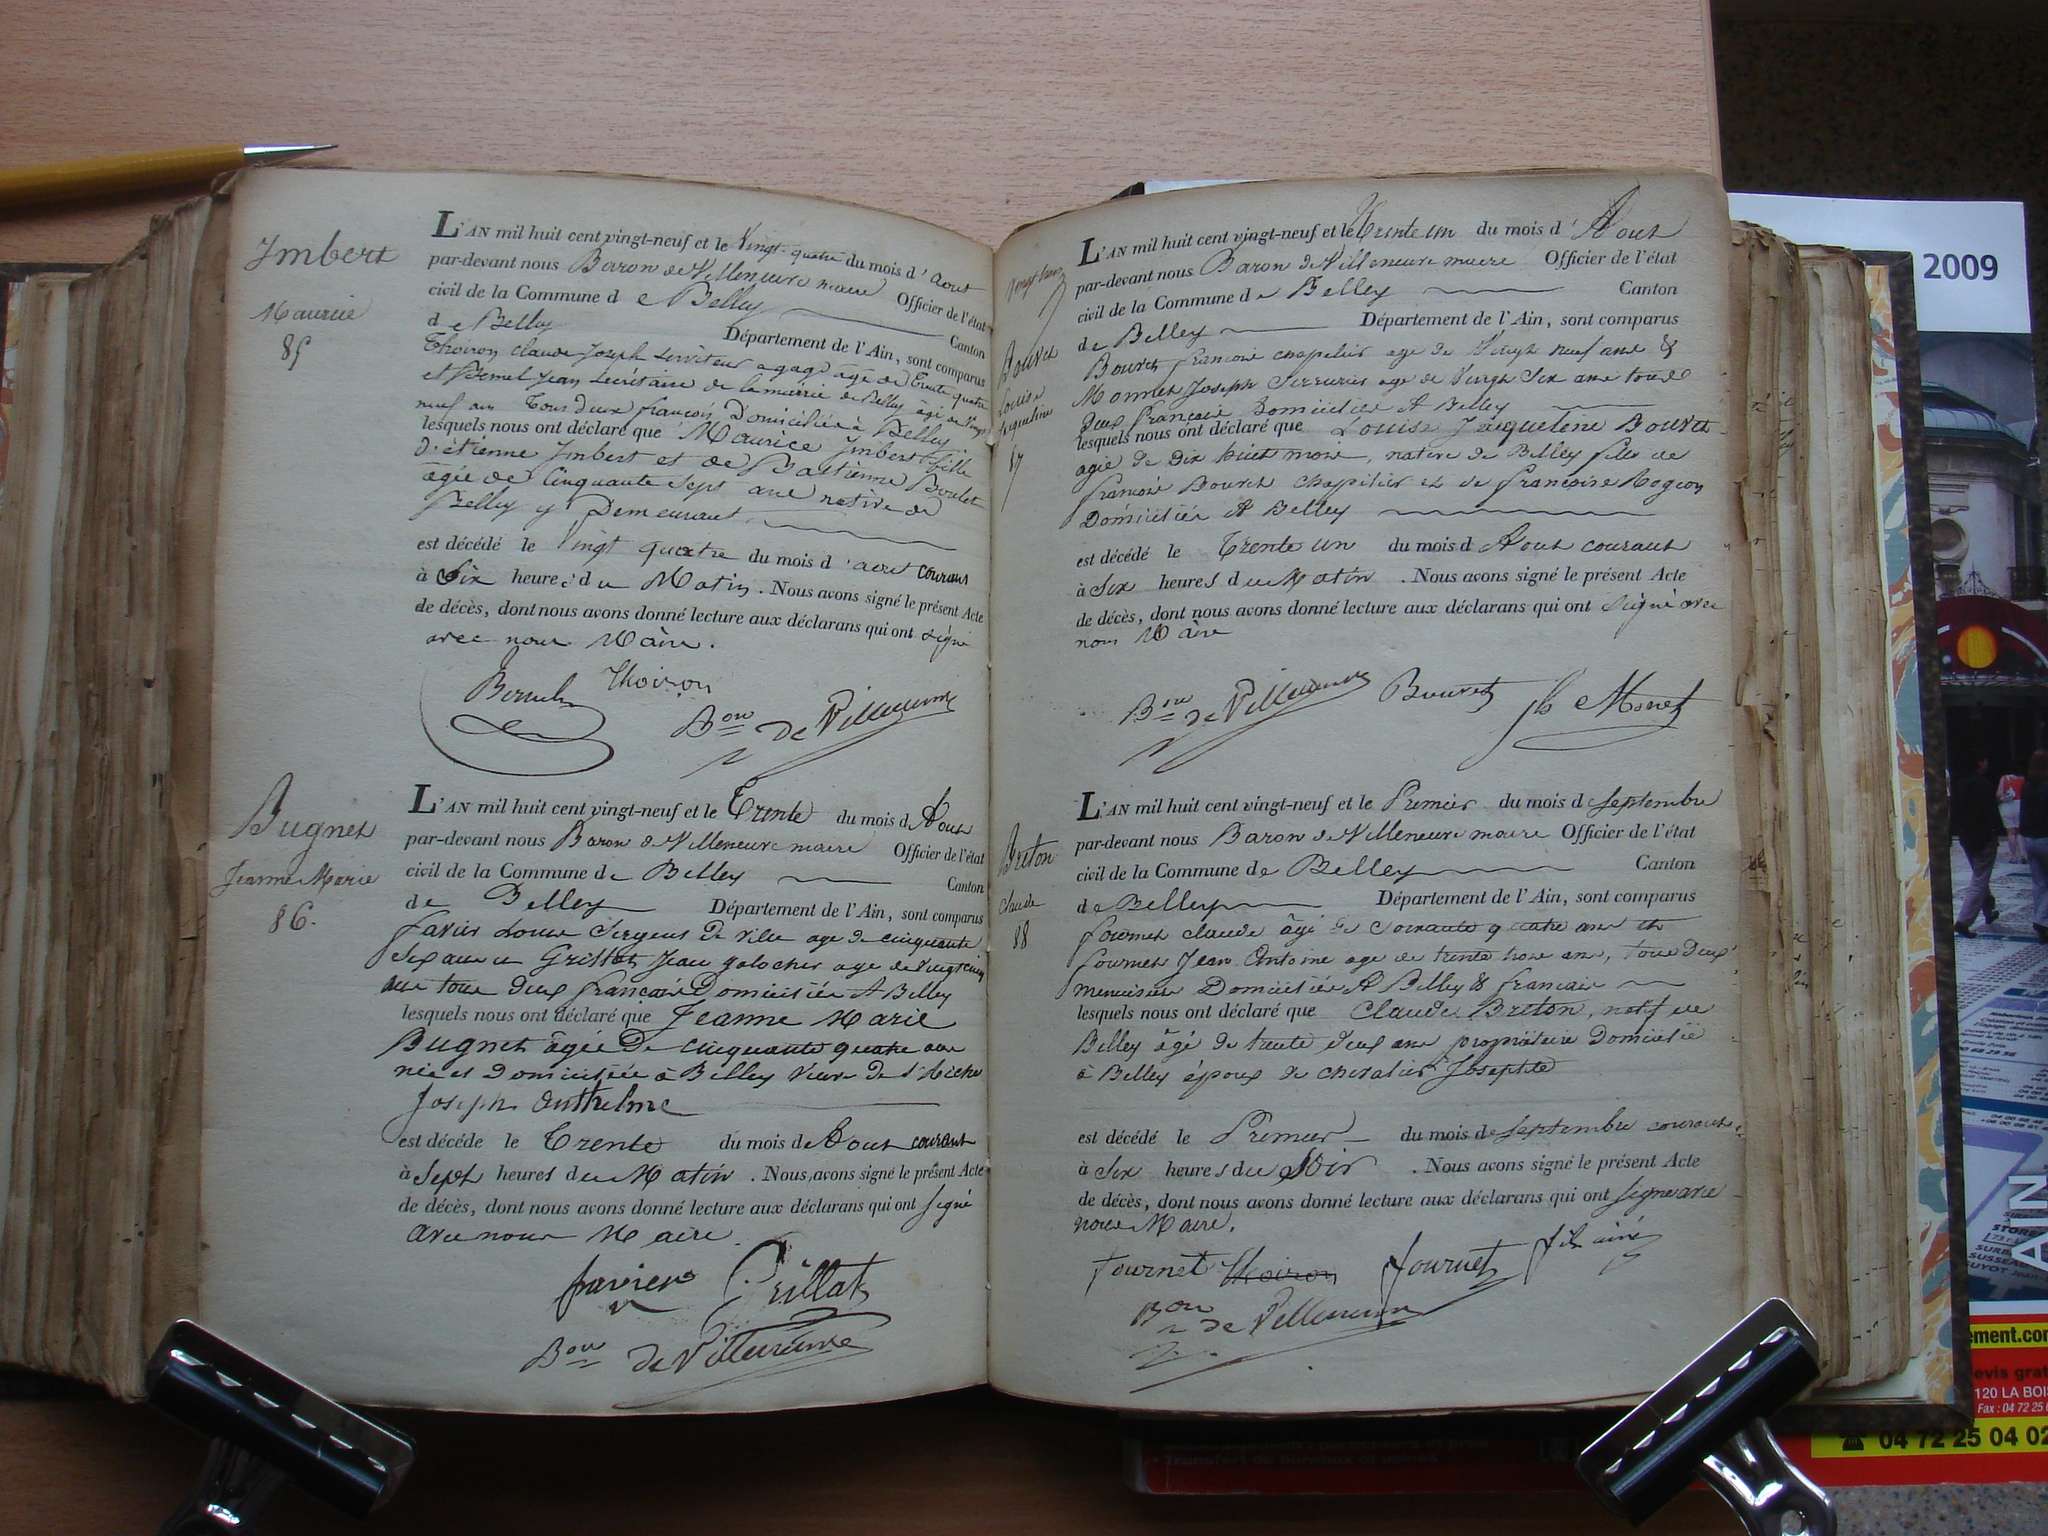 Imbert
Maurice
85
L'AN mil huit cent vingt-neuf et le Vingt-quatre du mois d'aout
par-devant nous Baron de Villeneuve maire Officier de l'état
civil de la Commune de Belley Canton
de Belley Département de l'Ain, sont comparus
Thoiron Claude Joseph serviteur a gage âgé de trente quatre
et Jean Secrétaire de la mairie de Belley âgé de vingt
neuf an Tous deux françois Domiciliés à Belley
lesquels nous ont déclaré que Maurice Imbert fille
d'étienne Imbert et de Bastienne Boulet
âgée de Cinquante Sept ans native de
Belley y Demeurant
est décédé le Vingt quatre du mois d'aout courant
à Six heures du Matin. Nous avons signé le présent Acte
de décès, dont nous avons donné lecture aux déclarans qui ont signé
avec nous Maire.
Thoiron
Bon de Villeneuve
Bugnet
Jeanne Marie
86.
L'AN mil huit cent vingt-neuf et le Trente du mois d'Aout
par-devant nous Baron de Villeneuve maire Officier de l'état
civil de la Commune de Belley Canton
de Belley Département de l'Ain, sont comparus
favier Louis Sergent de ville age de cinquante
Six ans et Grillat Jean galocher age de vingt cinq
ans tous deux français Domiciliés A Belley
lesquels nous ont déclaré que Jeanne Marie
Bugnet âgée De cinquante quatre ans
née et Domiciliée à Belley Veuve de
Joseph Anthelme
est décédé le Trente du mois d'Aout courant
à Sept heures du Matin. Nous avons signé le présent Acte
de décès, dont nous avons donné lecture aux déclarans qui ont signé
avec nous Maire.
favier Grillat
Bon de Villeneuve
Bouvet
Louise
Jaqueline
87
L'AN mil huit cent vingt-neuf et le Trente un du mois d'Aout
par-devant nous Baron de Villeneuve maire Officier de l'état
civil de la Commune de Belley Canton
de Belley Département de l'Ain, sont comparus
Bouvet françois chapelier age de Vingt neuf ans &
Monnet Joseph Serrurier age de Vingt Six ans tous
deux français Domiciliés A Belley
lesquels nous ont déclaré que Louise Jaqueleine Bouvet
agée de Dix huit mois, native de Belley fille de
françois Bouvet chapelier et de françoise Mognon
Domiciliée A Belley
est décédé le Trente un du mois d'Aout courant
à Six heures du Matin. Nous avons signé le présent Acte
de décès, dont nous avons donné lecture aux déclarans qui ont signé avec
nous Maire
Bon de Villeneuve Bouvet Monet
Breton
Claude
88
L'AN mil huit cent vingt-neuf et le Premier du mois de Septembre
par-devant nous Baron de Villeneuve maire Officier de l'état
civil de la Commune de Belley Canton
de Belley Département de l'Ain, sont comparus
fournet claude âgé de Soixante quatre ans et
fournet Jean Antoine age de trente trois ans, tous deux
menuisiers Domiciliés A Belley & français
lesquels nous ont déclaré que Claude Breton, natif de
Belley âgé de trente deux ans propriétaire Domicilié
à Belley époux de chevalier Josephte
est décédé le Premier du mois de Septembre courant
à Six heures du Soir. Nous avons signé le présent Acte
de décès, dont nous avons donné lecture aux déclarans qui ont signé avec
nous Maire.
fournet Thoiron fournet fils ainé
Bon de Villeneuve
2009
AIN
120 LA BOIS
04 72 25 04 02